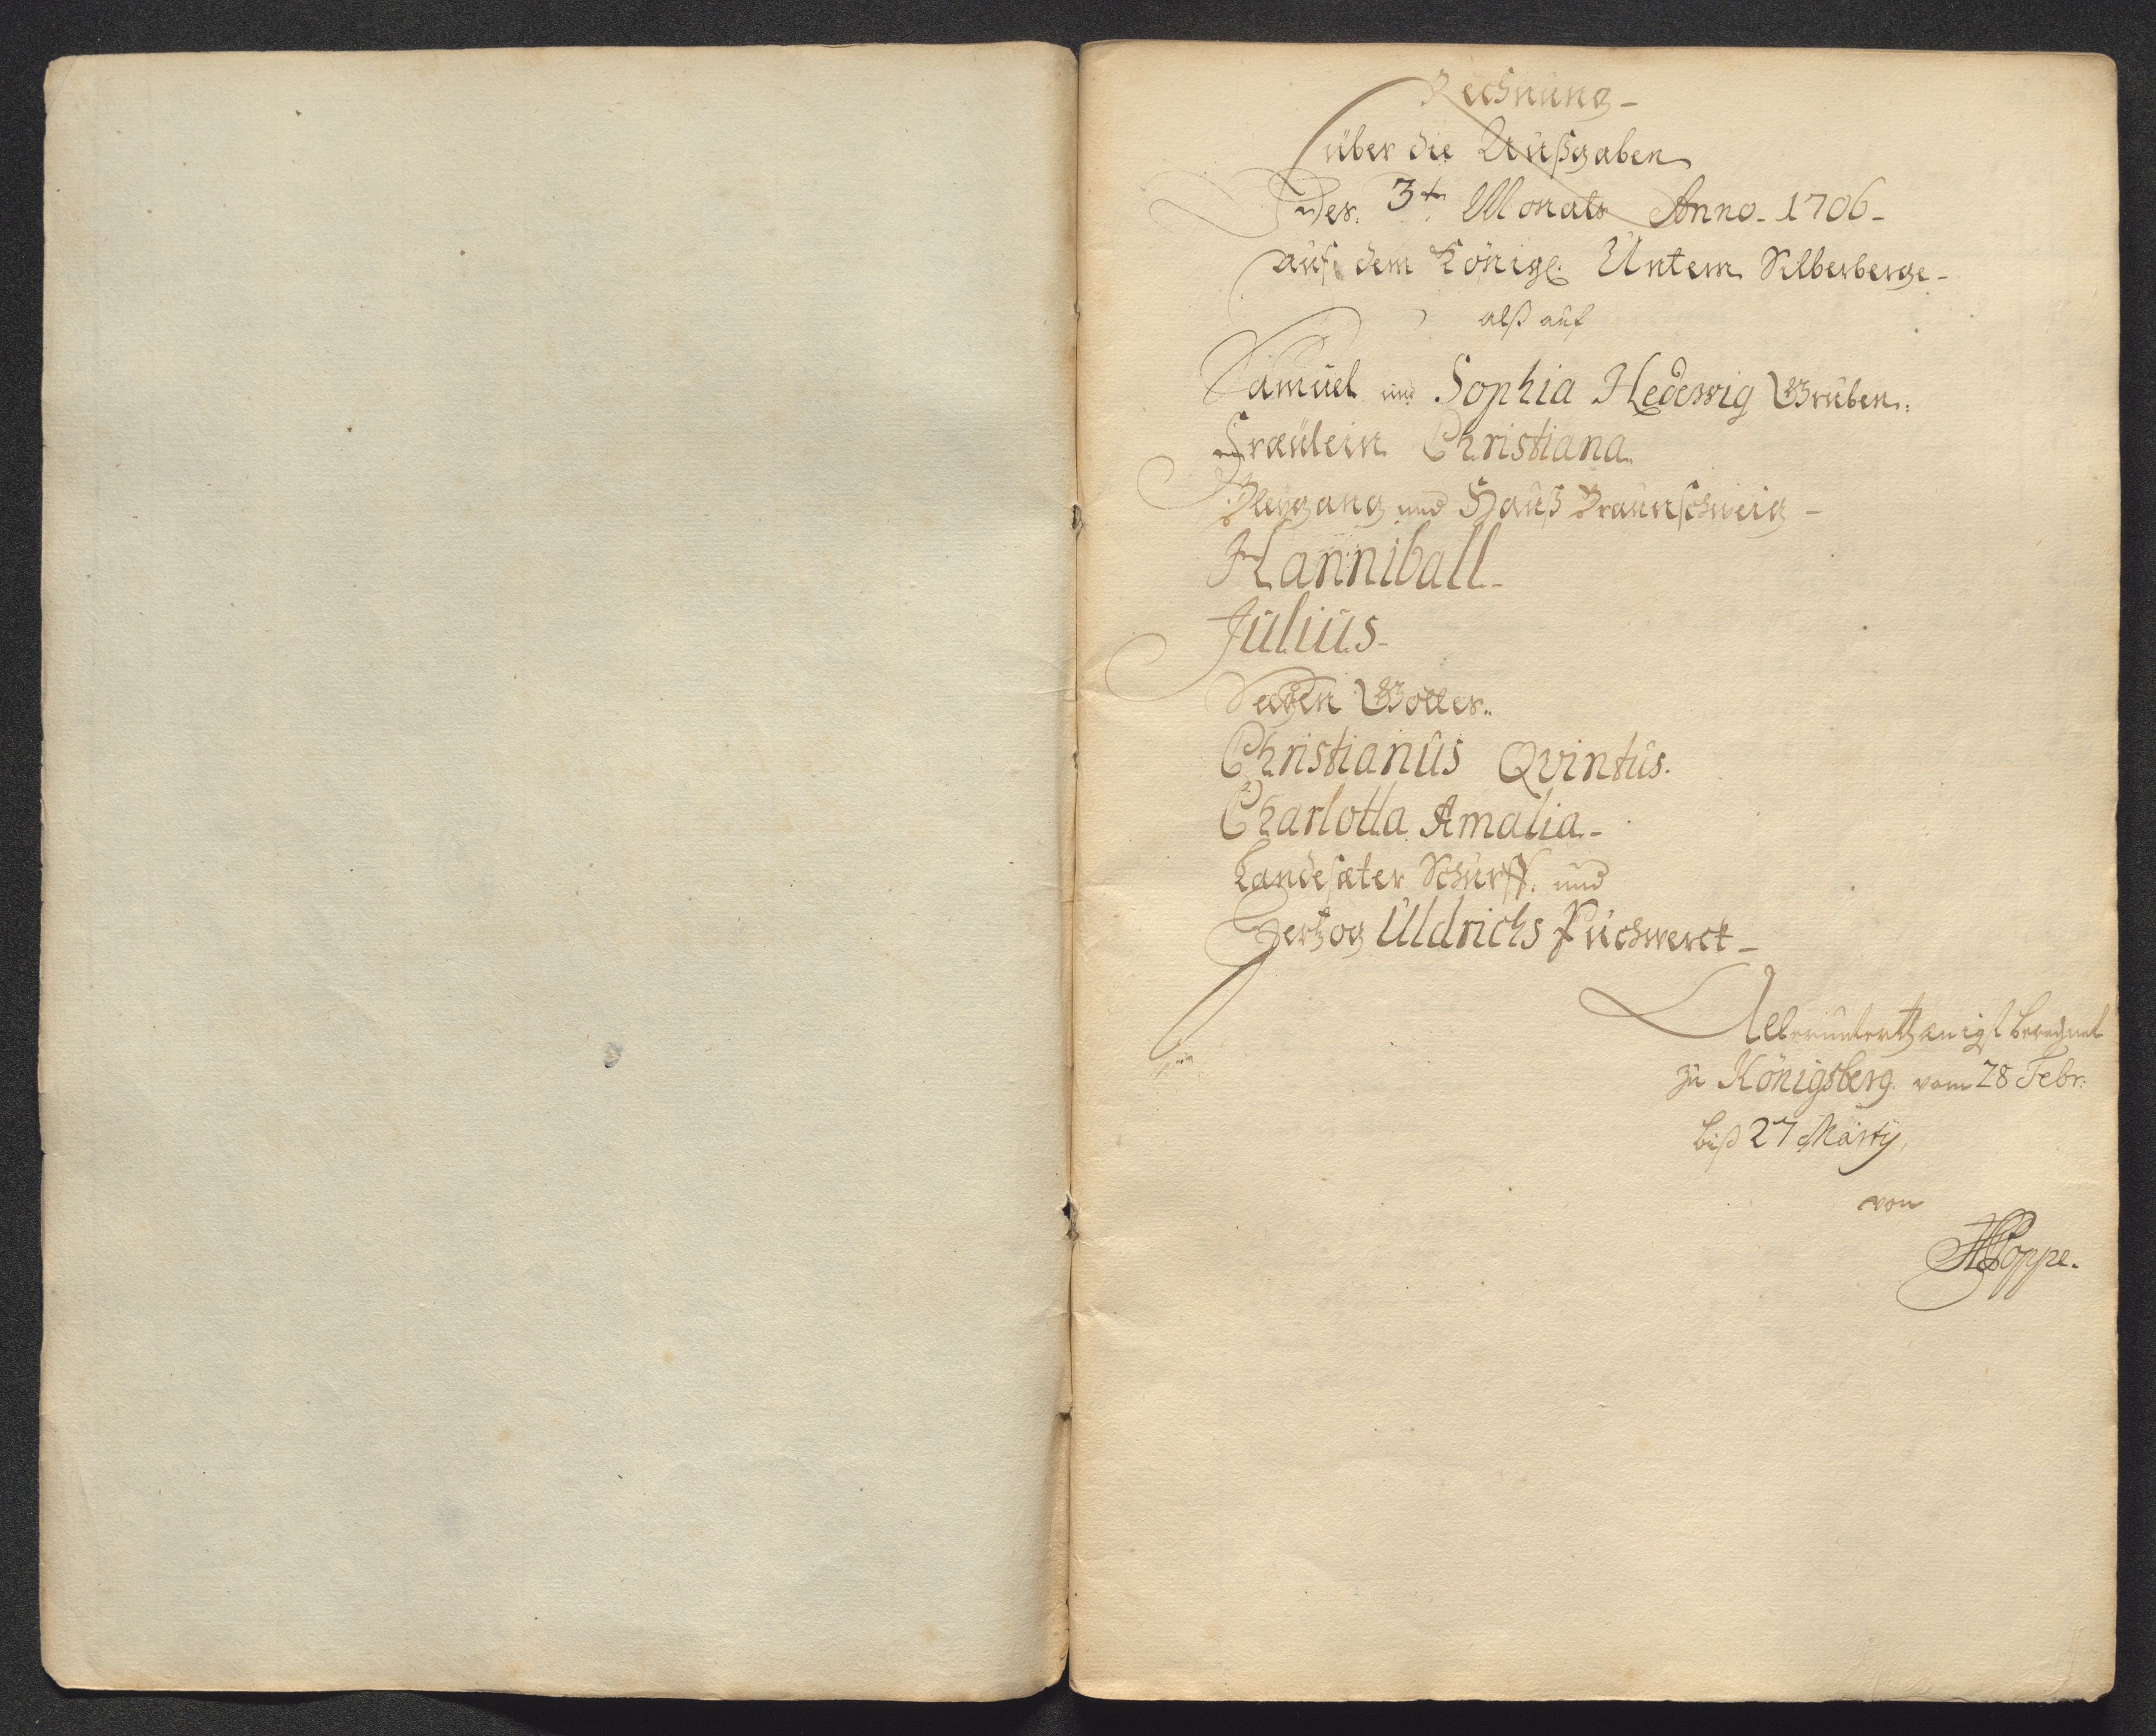 Rechnung
über die Außgaben
Des 3t. Monats Anno 1706
auf dem Königl. Untern Silberberge
alß auf
Samuel und Sophia Hedewig Gruben.
Fräulein Christiana.
Bleygang und Hauß Braunschweig
Hanniball
Julius
Seegen Gottes.
Christianus Qvintus.
Charlotta Amalia.
Landesæter Schurff. und
Hertzog Uldrichs Puchwerck
Allerunterthänigst berechnet
zu Königsberg vom 28 Febr:
biß 27 Marty
von
HPoppe.